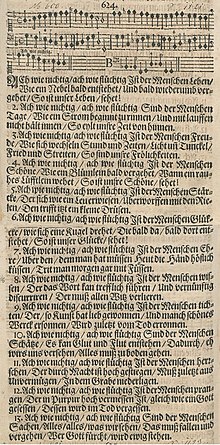 624.
Ch wie nichtig / ach wie flüchtig Ist der Menschen Leben /
Wie ein Nebel bald entstehet / Und bald wiederum vergehet / So ist unser Leben / sehet!
2. Ach wie nichtig / ach wie flüchtig Sind der Menschen
Tage / Wie ein Strom beginnt zu rinnen / Und mit lauffen
nicht hält innen / So unsre Zeit von hinnen.
3. Ach wie nichtig / ach wie flüchtig Ist der Menschen Freude /
Wie sich wechseln Stund und Zeiten / Licht und Dunckel /
Fried und Streiten / So sind unsre Frölichkeiten.
4. Ach wie nichtig / ach wie flüchtig Ist der Menschen
Schöne / Wie ein Blümlein bald vergehet / Wann ein rauhes
Lüfftlein wehet / So ist unsre Schöne / sehet!
5. Ach wie nichtig / ach wie flüchtig Ist der Menschen Stärcke /
Der sich wie ein Leu erwiesen /
6. Ach wie nichtig / ach wie flüchtig Ist der Menschen Glücke /
Wie sich eine Kugel drehet / Die bald da / bald dort
stehet / So ist unser Glücke / sehet!
7. Ach wie nichtig / ach wie flüchtig Ist der Menschen Ehre /
Uber den / dem man hat müssen Heut die Händ höflich
küssen / Tut man morgen gar mit Füssen.
8. Ach wie nichtig / ach wie flüchtig Ist der Menschen
/ Der das Wort kan trefflich führen / Und vernünfftig
discurriren / Der muß allen Witz verlieren.
9. Ach wie nichtig / ach wie flüchtig Ist der Menschen
/ Der / so Kunst hat lieb gewonnen / Und manch schönes
Werck ersonnen / Wird zuletzt vom Tod erronnen.
10. Ach wie nichtig / ach wie flüchtig Sind der Menschen
Schätze / Es kan Glut und Flut entstehen / Dadurch /
wirs uns versehen / Alles muß zu boden gehen.
11. Ach wie nichtig / ach wie flüchtig Ist der Menschen
/ Der durch Macht ist hoch gestiegen / Muß zuletzt aus
Unvermügen / In dem Grabe niederliegen.
12. Ach wie nichtig / ach wie flüchtig Ist der Menschen
/ Der in Purpur hoch vermessen Ist / gleich wie ein Gott
gesessen / Dessen wird im Tod vergessen.
13. Ach wie nichtig / ach wie flüchtig Sind der Menschen
Sachen / Alles / alles / was wir sehen / Das muß fallen und
vergehen / Wer Gott fürcht / wird ewig stehen.